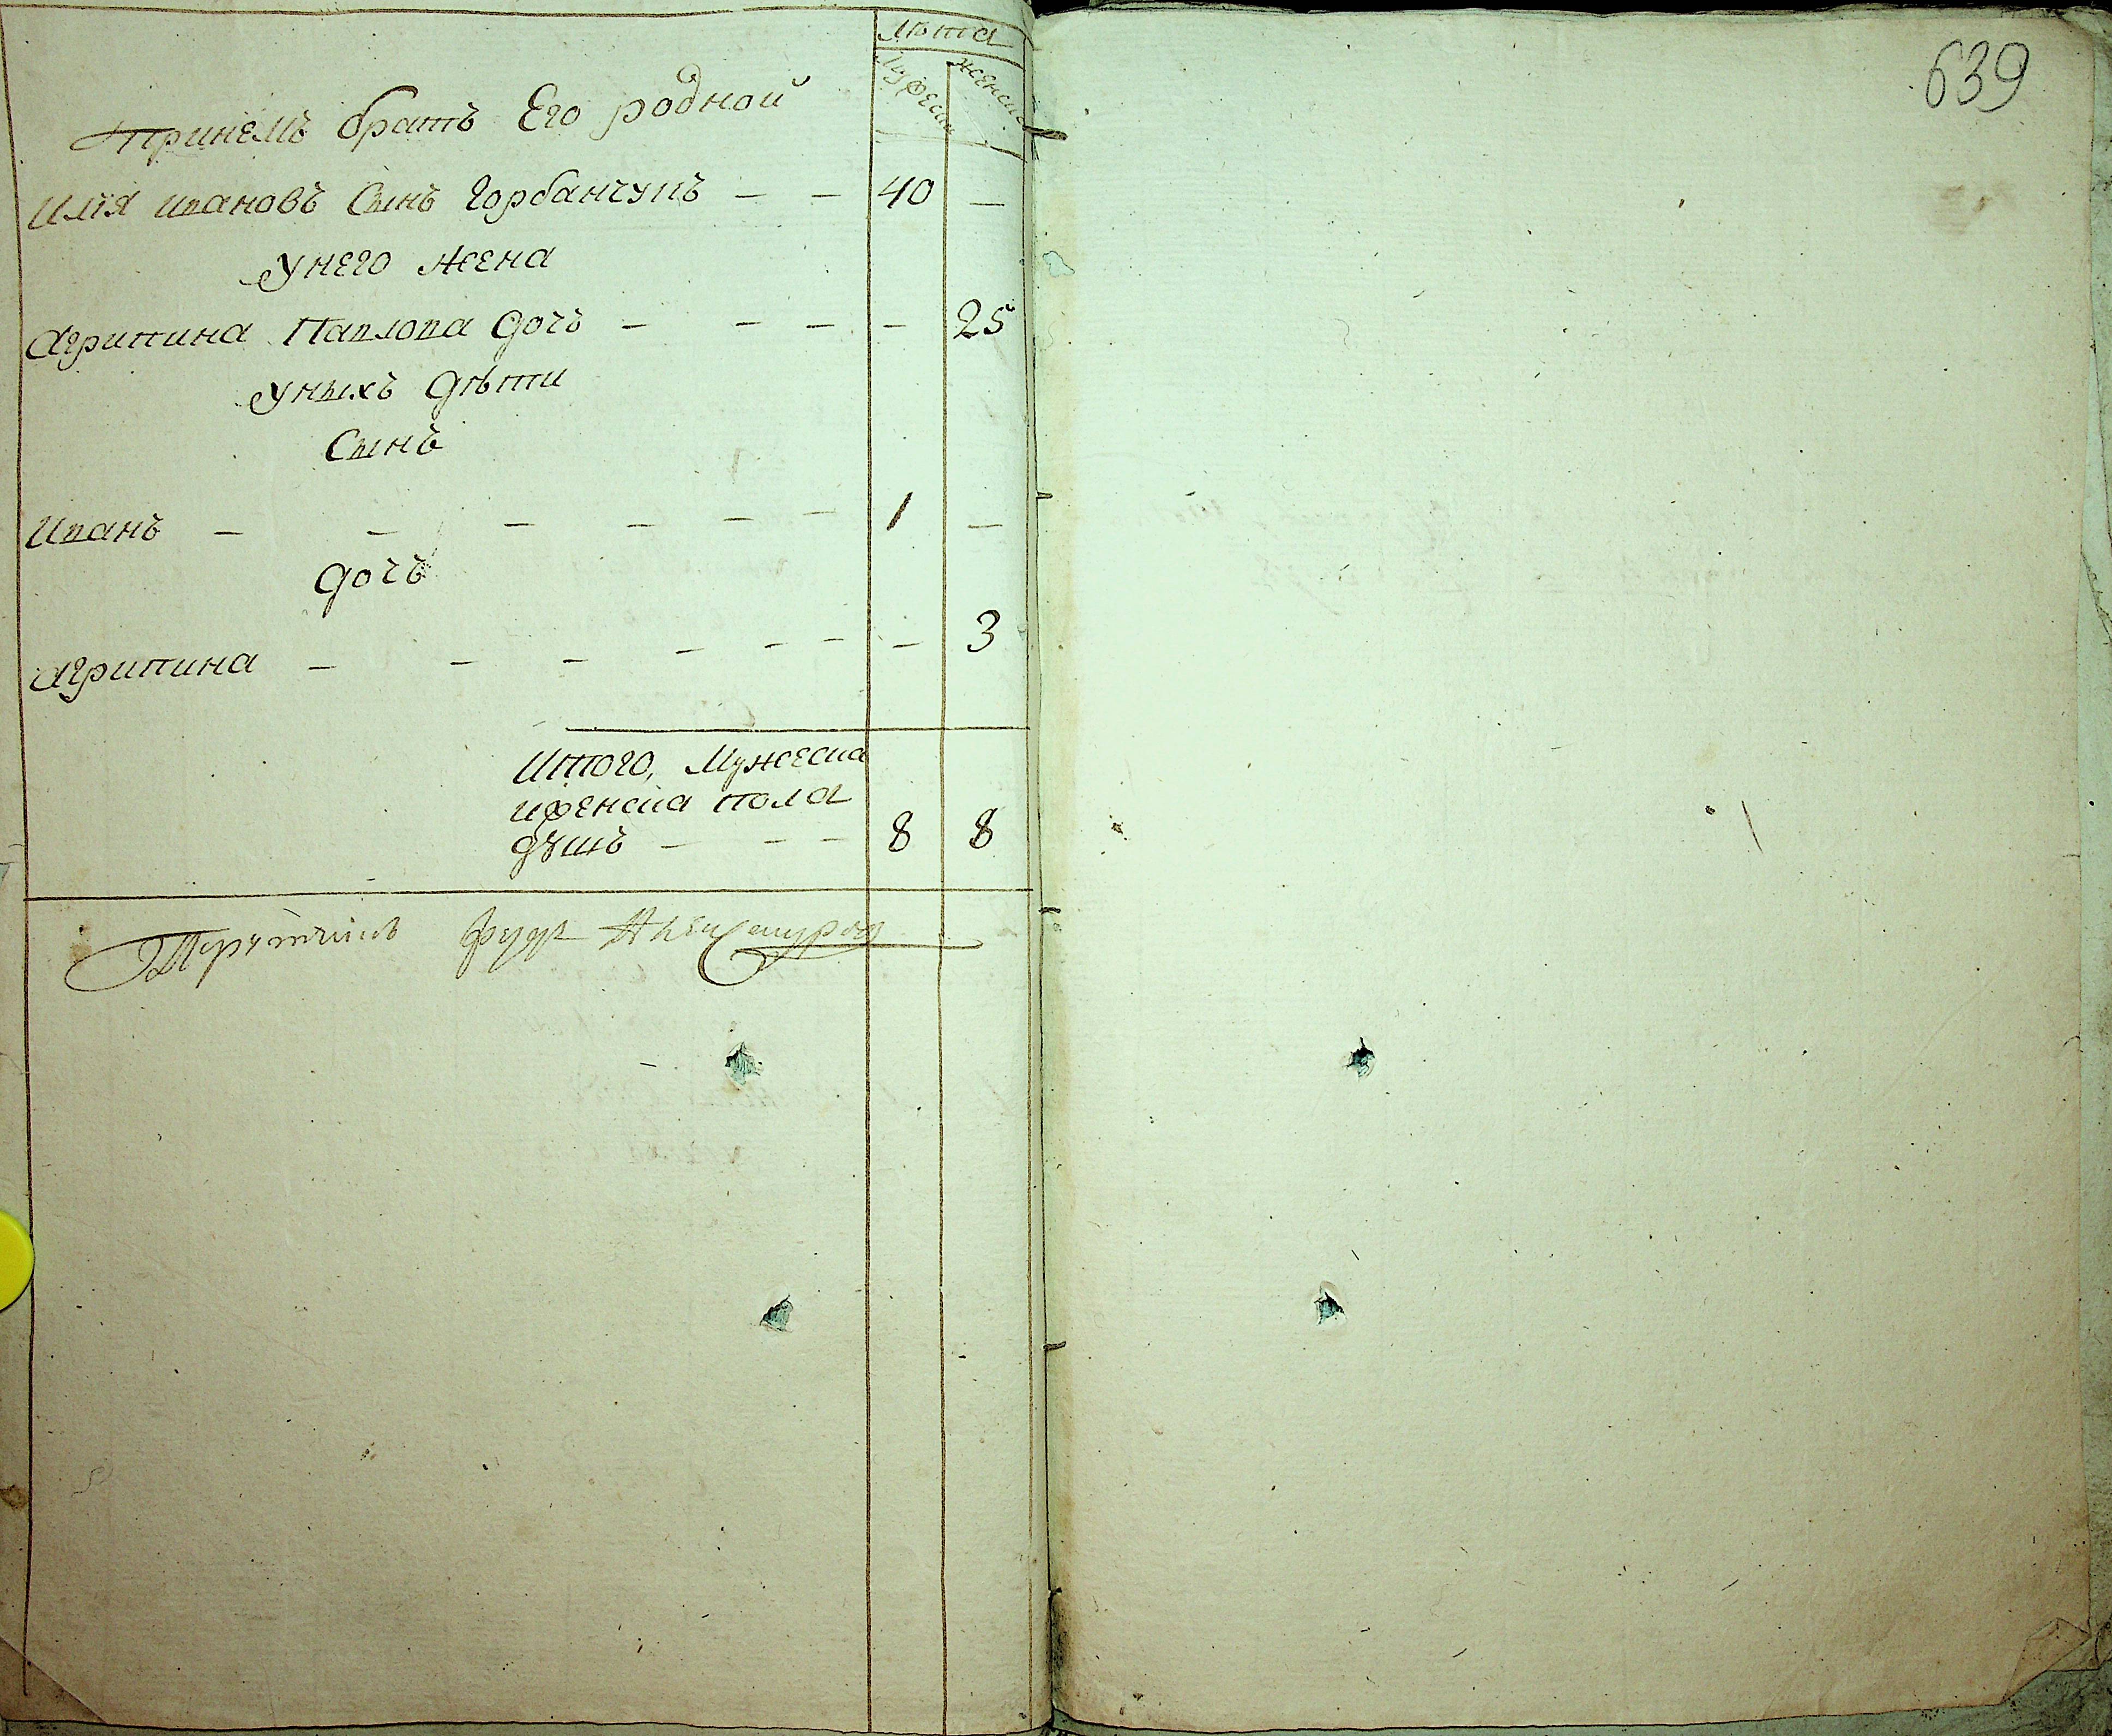 639
Лѣта
Мужеска Женска
Принемъ братъ Его родной
Илія ивановъ Сынъ Горбанчукъ — — 40 —
Унего жена
Агрипина Павлова дочъ — — — — 25
Уныхъ дѣти
Сынъ
Иванъ — — — — — — 1 —
дочъ
Агрипина — — — — — — — 3
Итого, Мужеска
иженска пола
дꙋшъ — — — 8 8
Порутчикъ